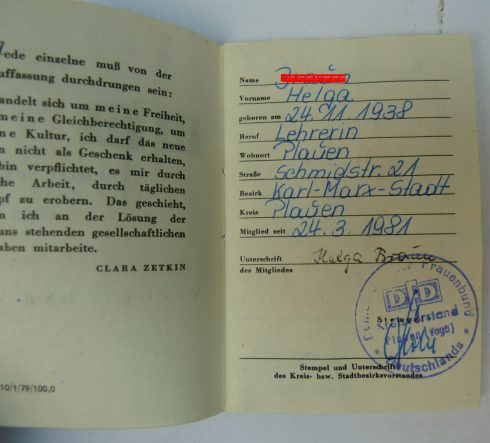 Jede einzelne muß von der
uffassung durchdrungen sein:
andelt sich um meine Freiheit,
meine Gleichberechtigung, um
ne Kultur, ich darf das neue
n nicht als Geschenk erhalten,
bin verpflichtet, es mir durch
che Arbeit, durch täglichen
pf zu erobern. Das geschieht,
n ich an der Lösung der
uns stehenden gesellschaftlichen
aben mitarbeite.
CLARA ZETKIN
10/1/79/100,0
Name
Vorname Helga
geboren am 24.11.1938
Beruf Lehrerin
Wohnort Plauen
Straße Schmidstr. 21
Bezirk Karl-Marx-Stadt
Kreis Plauen
Mitglied seit 24.3.1981
Unterschrift Helga
des Mitgliedes
Frauenbund
DFD
Kreisvorstand
Plauen (Vogtl)
Deutschlands
Stempel und Unterschrift
des Kreis- bzw. Stadtbezirksvorstandes